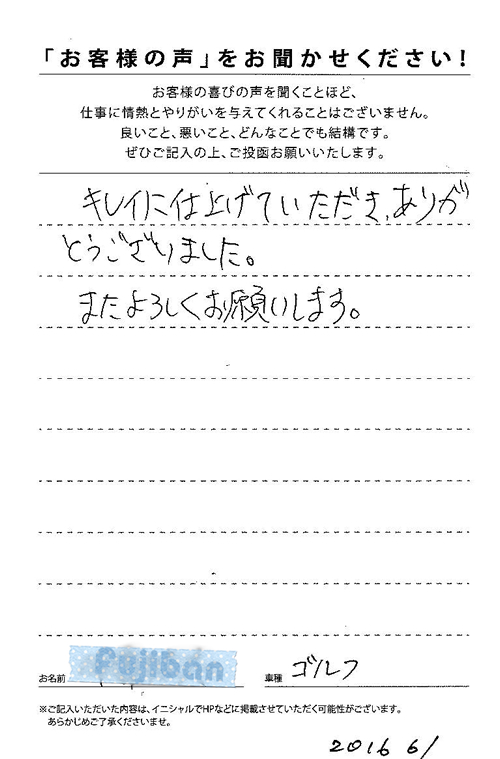 「お客様の声」をお聞かせください！
お客様の喜びの声を聞くことほど、
仕事に情熱とやりがいを与えてくれることはございません。
良いこと、悪いこと、どんなことでも結構です。
ぜひご記入の上、ご投函お願いいたします。
キレイに仕上げていただき、ありが
とうございました。
またよろしくお願いします。
お名前 Fujiban 車種 ゴルフ
※ご記入いただいた内容は、イニシャルでHPなどに掲載させていただく可能性がございます。
あらかじめご了承くださいませ。
2016 6/